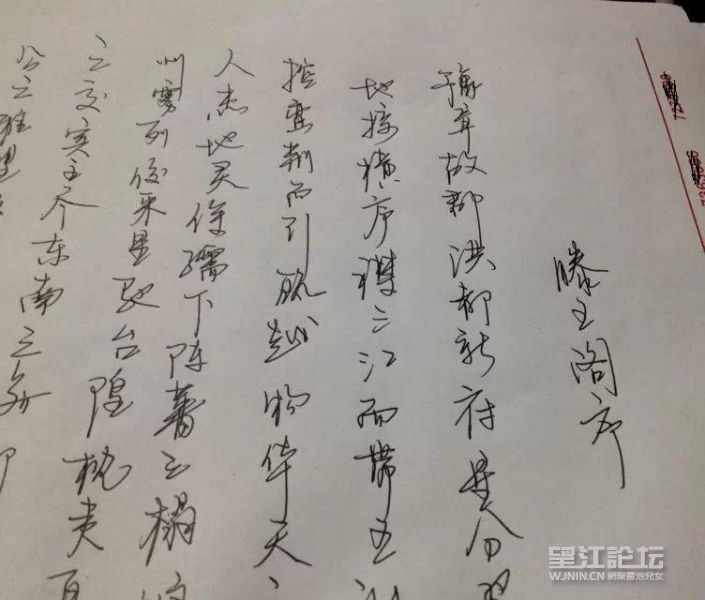 滕王阁序
豫章故郡洪都新府星分翼
地接衡庐襟三江而带五
控蛮荆而引瓯越物华天
人杰地灵徐孺下陈蕃之榻
州雾列俊采星驰台隍枕夷
之交宾主尽东南之美
公之雅望
望江論坛
WJNIN.CN 網聚雷池兒女